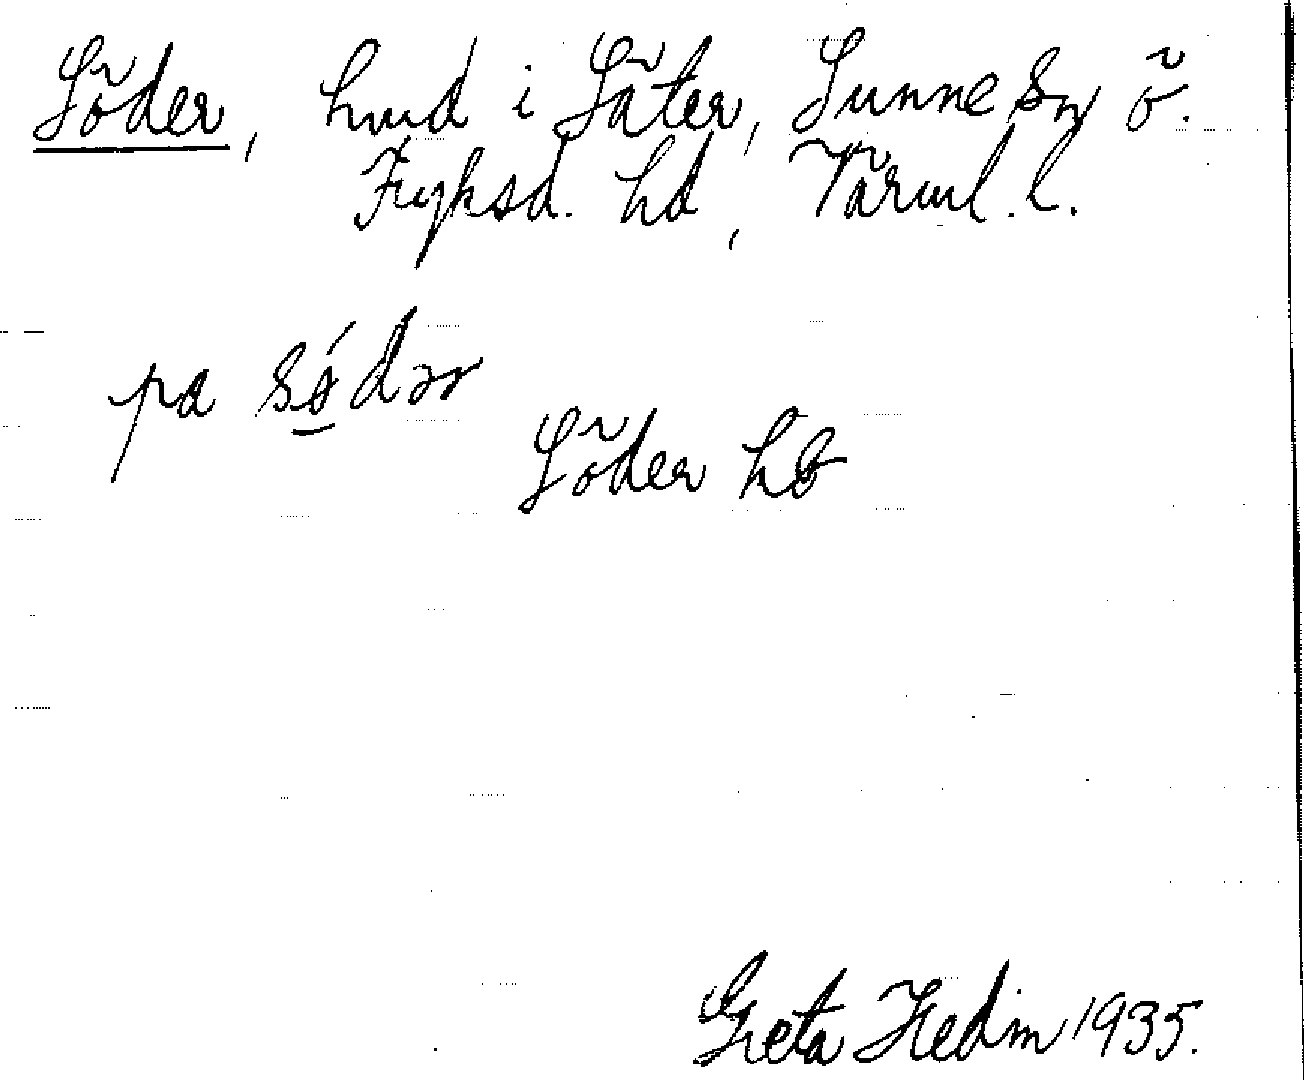 Söder, hmd i Säter, Sunne sn, Ö.
Fryksd. hd, Värml. l.
pa sǿ̱dər
Söder hb
Greta Hedin 1935.